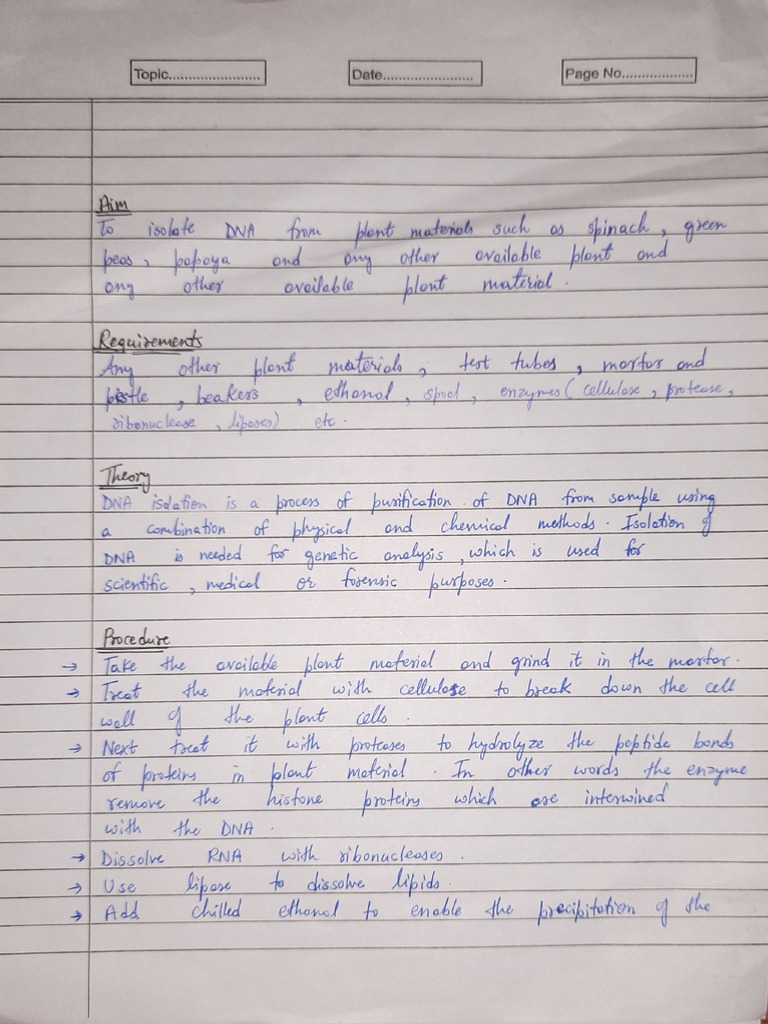 Topic.......................
Date.......................
Page No..................
Aim
To isolate DNA from plant materials such as spinach, green
peas, papaya and any other available plant and
any other available plant material.
Requirements
Any other plant materials, test tubes, mortar and
pistle, beakers, ethanol, spool, enzymes (cellulase, protease,
ribonuclease, lipases) etc.
Theory
DNA isolation is a process of purification of DNA from sample using
a combination of physical and chemical methods. Isolation of
DNA is needed for genetic analysis, which is used for
scientific, medical or forensic purposes.
Procedure
→ Take the available plant material and grind it in the mortar.
→ Treat the material with cellulase to break down the cell
wall of the plant cells.
→ Next treat it with proteases to hydrolyze the peptide bonds
of proteins in plant material. In other words the enzyme
remove the histone proteins which are interwined
with the DNA.
→ Dissolve RNA with ribonucleases.
→ Use lipase to dissolve lipids.
→ Add chilled ethanol to enable the precipitation of the